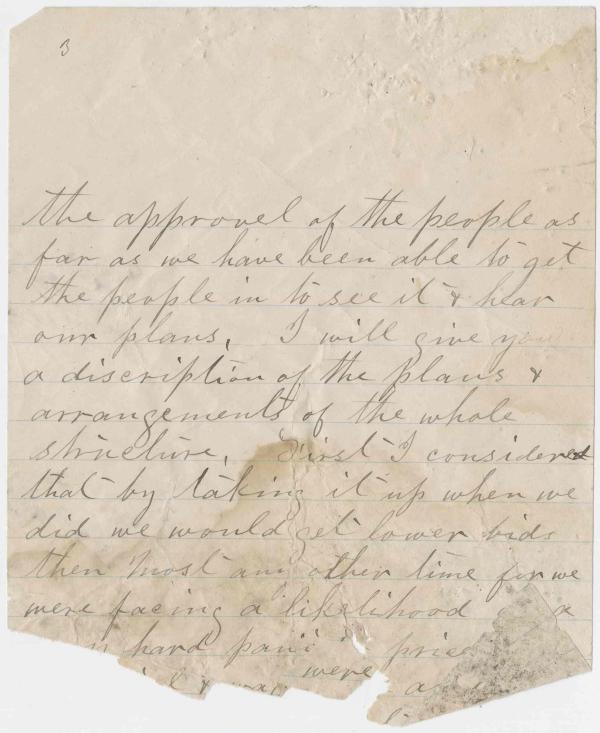 3
the approvel of the people as
far as we have been able to get
the people in to see it & hear
our plans, I will give you
a discription of the plans &
arrangements of the whole
structure, First I considered
that by taking it up when we
did we would get lower bids
then most any other time for we
were facing a likelihood a
hard pani price
& were a